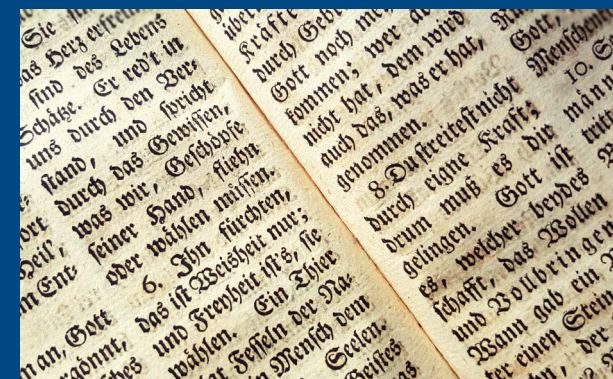 Sie
das Herz erfreu
ſind des Lebens
Schätze. Er red't in
uns durch den Ver-
ſtand, und ſpricht
durch das Gewiſſen,
was wir, Geſchöpfe
ſeiner Hand, fliehn
oder wählen müſſen.
6. Ihn fürchten,
das iſt Weisheit nur;
und Freyheit iſt's, ſie
wählen. Ein Thier
Feſſeln der Na-
Menſch dem
Seelen.
Geiſtes
Heil,
m Ent-
n an, Gott
Kräfte
durch Gebe
Gott noch me
kommen; wer
nicht hat, dem wird
auch das, was er hat,
genommen.
8. Du ſtreiteſt nicht
durch eigne Kraft;
drum muß es dir
gelingen. Gott iſt
es, welcher beydes
ſchafft, das Wollen
und Vollbringen
Wann gab ein
einen Stein
der
Gott,
Menſchen
10.